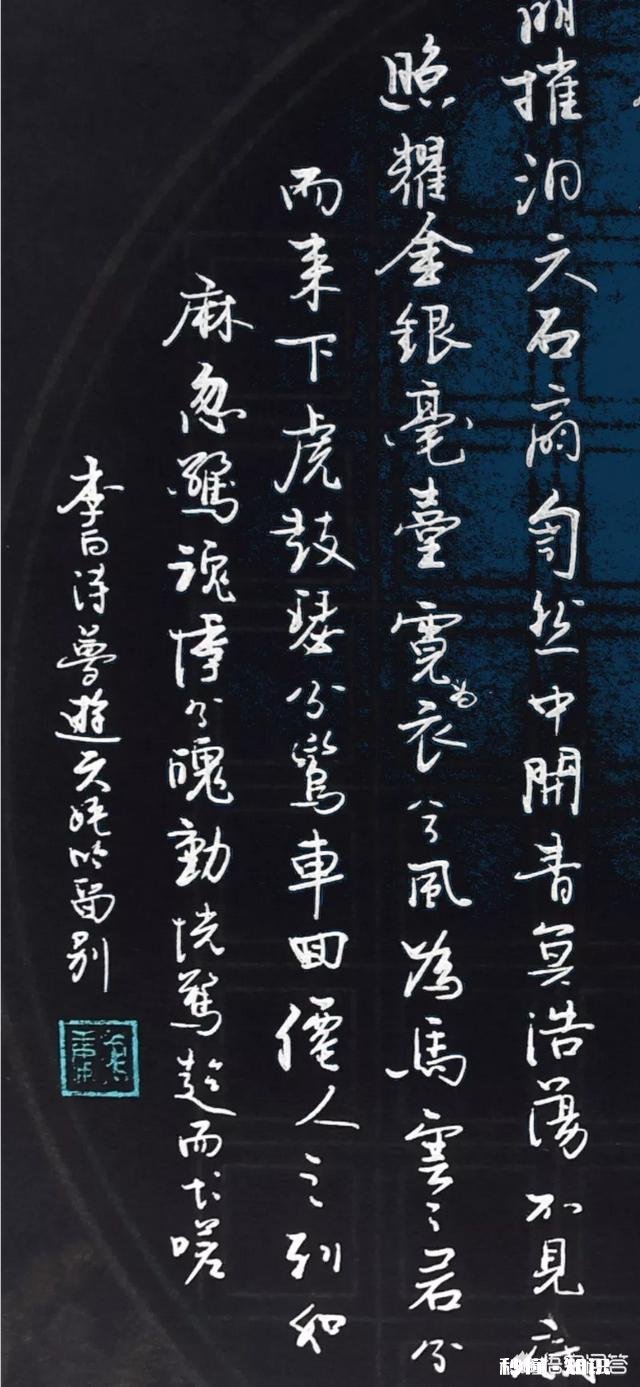 摧洞天石扇訇然中開青冥浩蕩不見底
照耀金銀毫臺霓為衣兮風為馬雲之君兮
而来下虎鼓瑟兮鸞車回僊人之列如
麻忽驚魂悸兮魄動恍驚起而長嗟
李白詩夢遊天姥吟留別